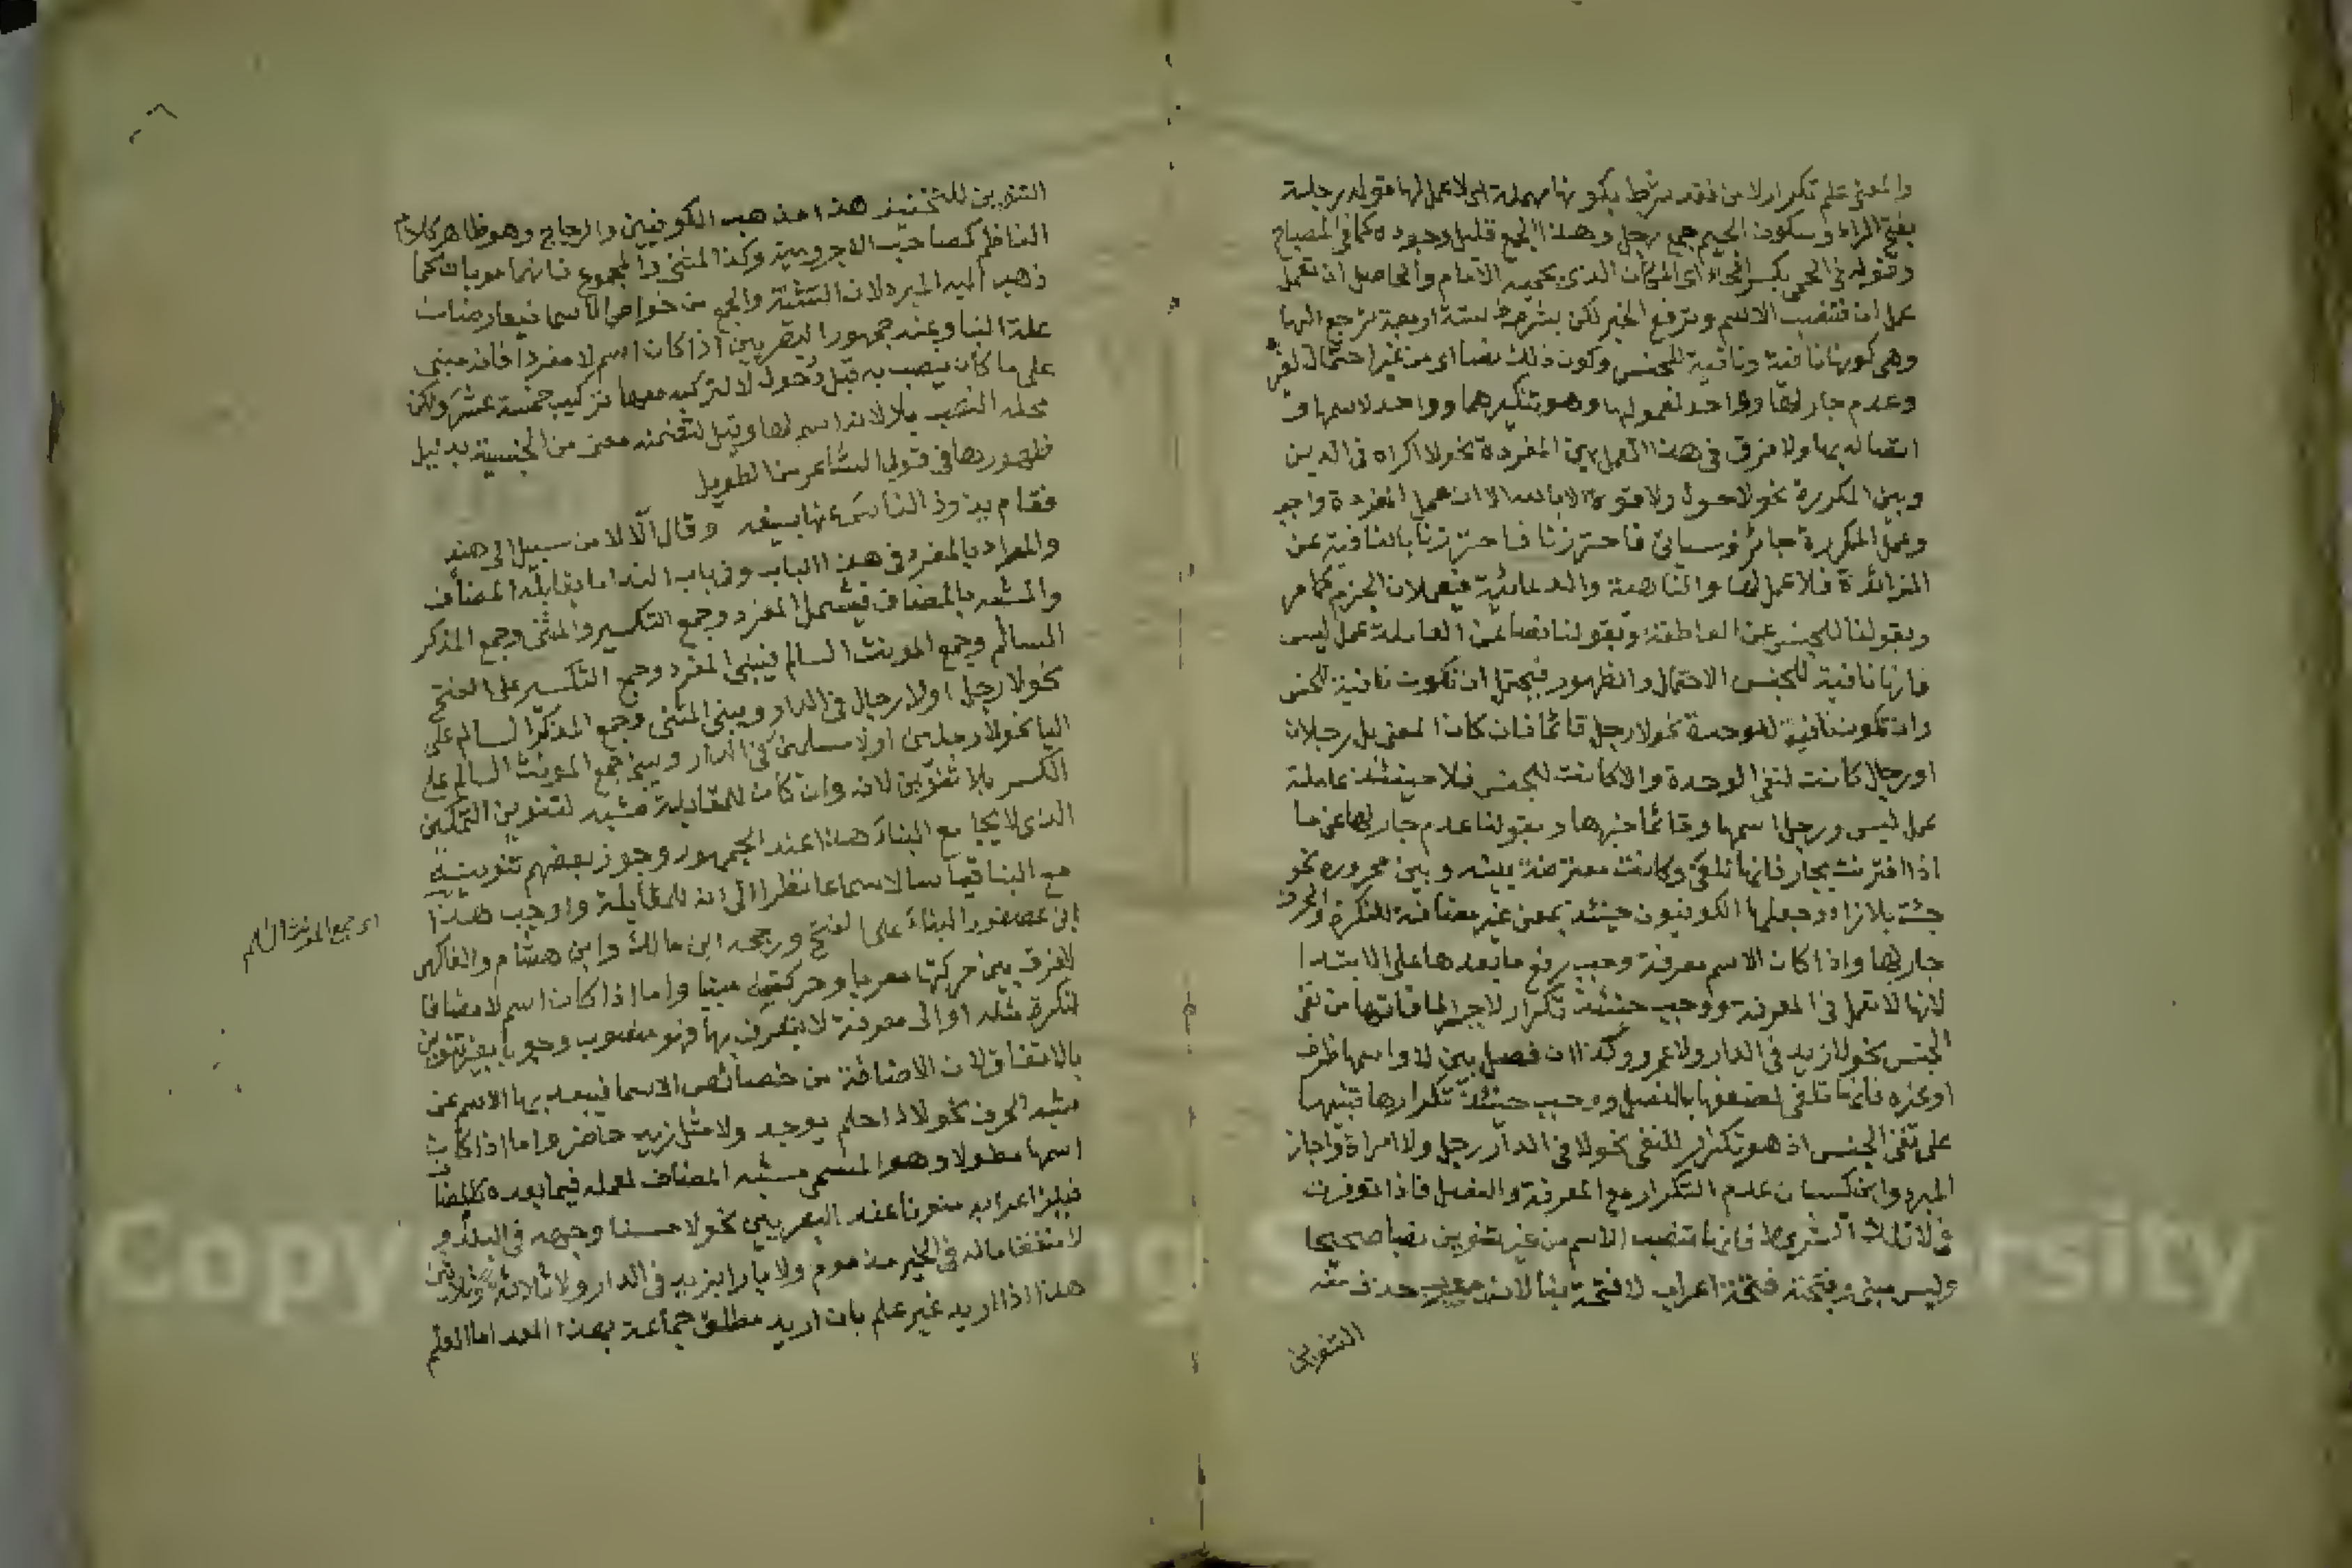 والمعنى علم تكرار لا من فقد شرط بكونها مهملة اي لا عمل لها قوله رجلة
بفتح الراء وسكون الجيم جمع رجل وهذا الجمع قليل وجوده كما في المصباح
وقوله في الحمى بكسر الحاء اي المكان الذي يحميه الامام والحاصل ان تعمل
عمل ان فتنصب الاسم وترفع الخبر لكن بشروط ستة اربعة ترجع اليها
وهي كونها نافية ونافية للجنس وكون ذلك نصا اي من غير احتمال لغيره
وعدم جار لها وواحد لمعموليها وهو تنكيرهما وواحد لاسمها و
اتصاله بها ولا فرق في هذا العمل بين المفردة نحو لا اكراه في الدين
وبين المكررة نحو لا حول ولا قوة الا بالله الا ان عمل المفردة واجب
وعمل المكررة جائز وسياتي فاحترزنا فاحترزنا بالنافية عن
الزائدة فلا عمل لها والناهية والدعائية فيعملان الجزم كما مر
وبقولنا للجنس عن العاطفة وبقولنا نصا عن العاملة عمل ليس
فانها نافية للجنس الاحتمال والظهور فيحتمل ان تكون نافية للجنس
وان تكون نافية للوحدة نحو لا رجل قائما فان كان المعنى بل رجلان
او رجال كانت لنفي الوحدة والا كانت للجنس فلا حينئذ عاملة
عمل ليس ورجل اسمها وقائما خبرها وبقولنا عدم جار لها عن ما
اذا اقترنت بجار فانها تلغى وكانت معترضة بينه وبين مجروره نحو
جئت بلا زاد وجعلها الكوفيون حينئذ بمعنى غير مضافة للنكرة والحرف
جار لها واذا كان الاسم معرفة وجب رفع ما بعدها على الابتدا
لانها لا تعمل في المعرفة ووجب حينئذ تكرار لا جبرا لما فاتها من نفي
الجنس نحو لا زيد في الدار ولا عمرو وكذا ان فصل بين لا واسمها ظرف
او غيره فانها تلغى لضعفها بالفصل ووجب حينئذ تكرارها تنبيها
على نفي الجنس اذ هو تكرار للنفي نحو لا في الدار رجل ولا امراة واجاز
المبرد وابن كيسان عدم التكرار مع المعرفة والفصل فاذا توفرت
في لا تلك الشروط فانها تنصب الاسم من غير تنوين نصبا صحيحا
وليس مبني وفتحته فتحة اعراب لا فتحة بنا لانه معرب حذف منه
التنوين
التنوين للتخفيف هذا مذهب الكوفيين والزجاج وهو ظاهر كلام
الناظم كصاحب الاجرومية وكذا المثنى والمجموع فانهما معربان كما
ذهب اليه المبرد لان التثنية والجمع من خواص الاسما فيعارضان
علة البنا وعند جمهور البصريين اذا كان اسم لا مفردا فانه مبني
على ما كان ينصب به قبل دخول لا لتركبه معها تركيب خمسة عشر ولكن
محله النصب بلا لانه اسم لها وقيل لتضمنه معنى من الجنسية بدليل
ظهورها في قول الشاعر من الطويل
فقام يذود الناس عنها بسيفه وقال الا لا من سبيل الى هند
والمراد بالمفرد في هذا الباب وفي باب الندا ما يقابله المضاف
والمشبه بالمضاف فيشمل المفرد وجمع التكسير والمثنى وجمع المذكر
السالم وجمع المونث السالم فيبنى المفرد وجمع التكسير على الفتح
نحو لا رجل او لا رجال في الدار ويبنى المثنى وجمع المذكر السالم على
اليا نحو لا رجلين او لا مسلمين في الدار ويبنى جمع المونث السالم على
الكسر بلا تنوين لانه وان كان للمقابلة مشبه لتنوين التمكين
الذي لا يجامع البناء هذا عند الجمهور وجوز بعضهم تنوينه
مع البنا قياسا لا سماعا نظرا الى انه للمقابلة واوجب هذا
ابن عصفور البناء على الفتح ورجحه ابن مالك وابن هشام والفاكهي
للفرق بين حركتها معربا وحركته مبنيا واما اذا كان اسم لا مضافا
لنكرة مثله او الى معرفة لا يتعرف بها فهو منصوب وجوبا بغير تنوين
بالاتفاق لان الاضافة من خصائص الاسما فيبعد بها الاسم عن
شبه الحرف نحو لا ذا حلم يوجد ولا مثل زيد حاضر واما اذا كان
اسمها مطولا وهو المسمى مشبه المضاف لعمله فيما بعده كالمضاف
فيلزم اعرابه منونا عند البصريين نحو لا حسنا وجهه في البلد و
لا منفقا ماله في الخير مذموم ولا مارا بزيد في الدار ولا ثلاثة وثلاثين
هذا اذا اريد غير علم بان اريد مطلق جماعة بهذا العدد اما العلم
اي جمع المونث السالم